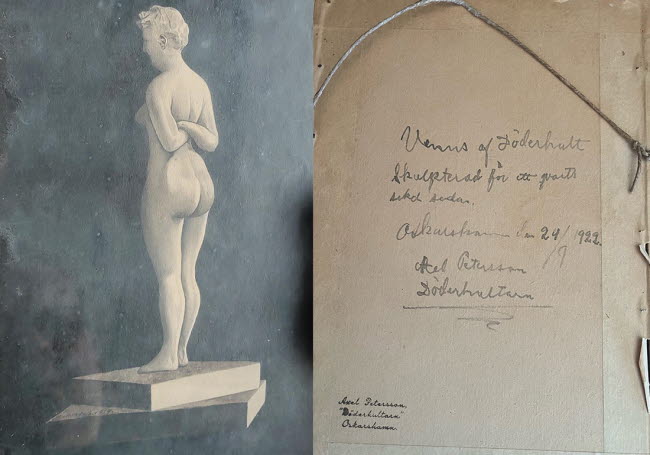 Venus af Döderhult
Skulpterad för ett qvarts
sekel sedan.
Oskarshamn den 29/ 1922.
Axel Petersson
Döderhultarn
Axel Petersson
"Döderhultarn"
Oskarshamn.